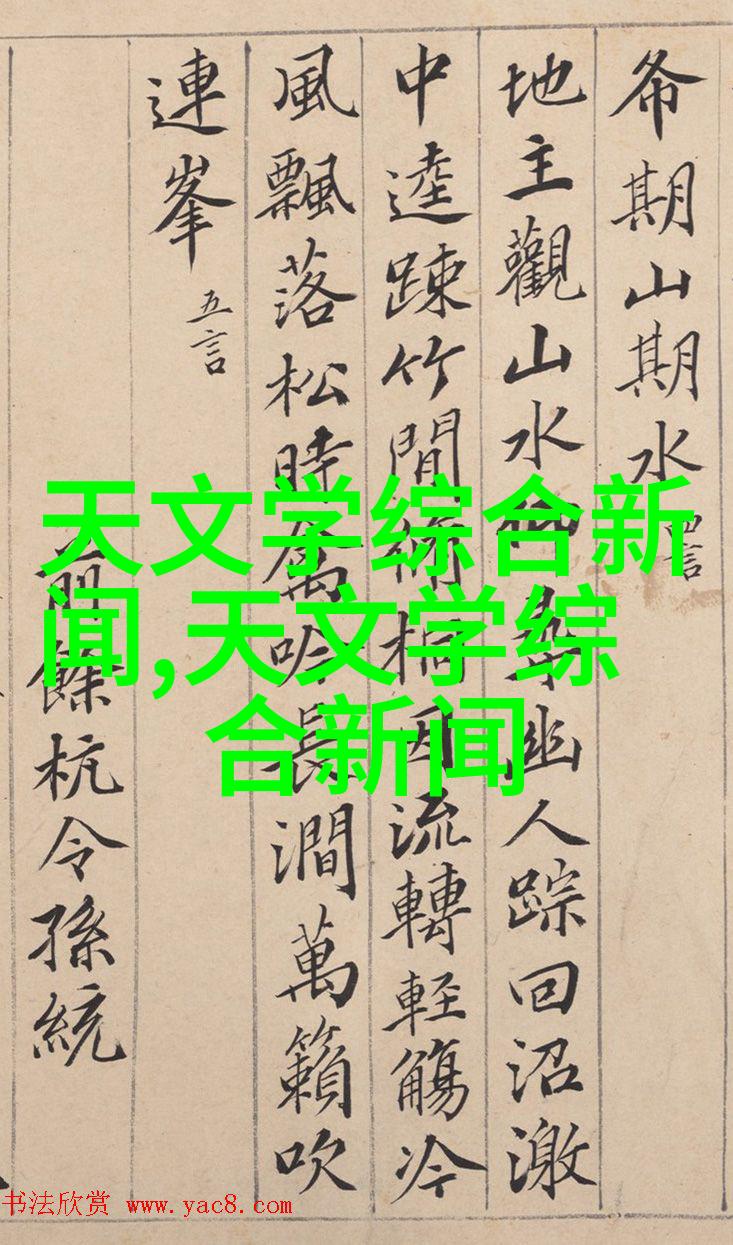 希期山期水 四言
地主觀山水仰尋幽人踪回沼激
中逵踈竹間脩桐因流轉輕觴冷
風飄落松時禽吟長澗萬籟吹
連峯 五言
前餘杭令孫統
天文学综合新
闻,天文学综
合新闻
书法欣赏 www.yac8.com